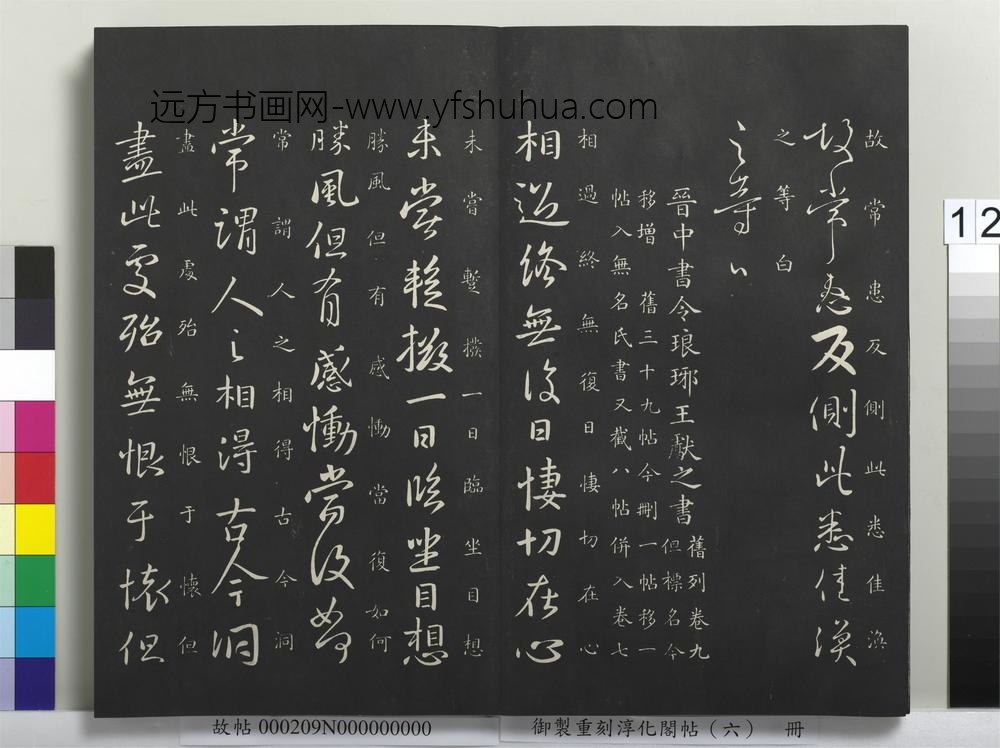 远方书画网-www.yfshuhua.com
故常患反側此悉佳渙
故常患反側此悉佳渙
之等白
之等白
晉中書令琅琊王獻之書
舊列卷九
但標名今
移增舊三十九帖今刪一帖移一
帖入無名氏書又截八帖併入卷七
相過終無復日悽切在心
相過終無復日悽切在心
未嘗蹔撥一日臨坐目想
未嘗蹔撥一日臨坐目想
勝風但有感慟當復如何
勝風但有感慟當復如何
常謂人之相得古今洞
常謂人之相得古今洞
盡此處殆無恨于懷但
盡此處殆無恨于懷但
12
故帖 000209N000000000
御製重刻淳化閣帖（六） 冊